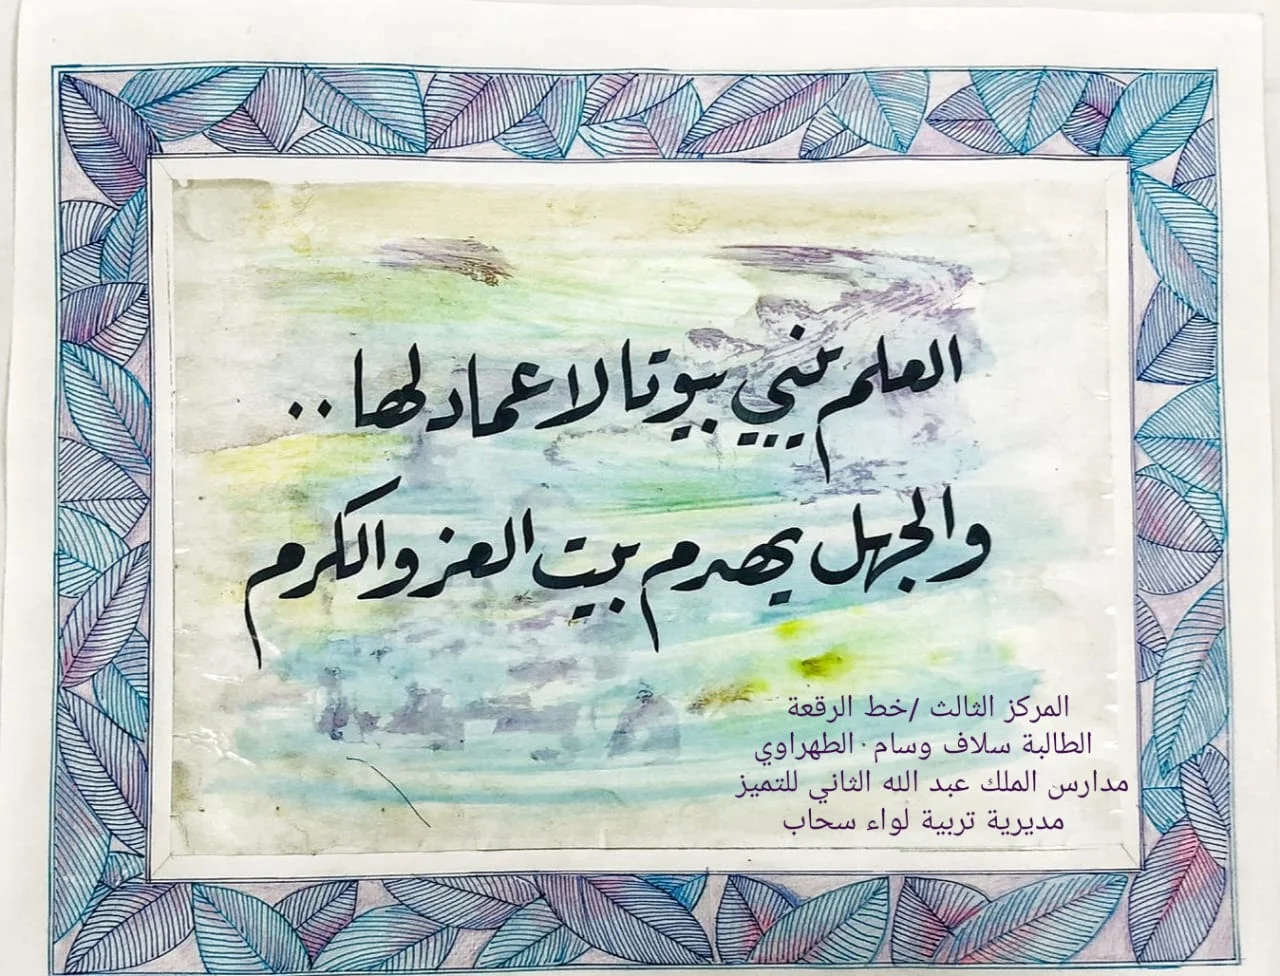 العلم يبني بيوتا لا عماد لها ..
والجهل يهدم بيت العز والكرم
المركز الثالث /خط الرقعة
الطالبة سلاف وسام الطهراوي
مدارس الملك عبد الله الثاني للتميز
مديرية تربية لواء سحاب